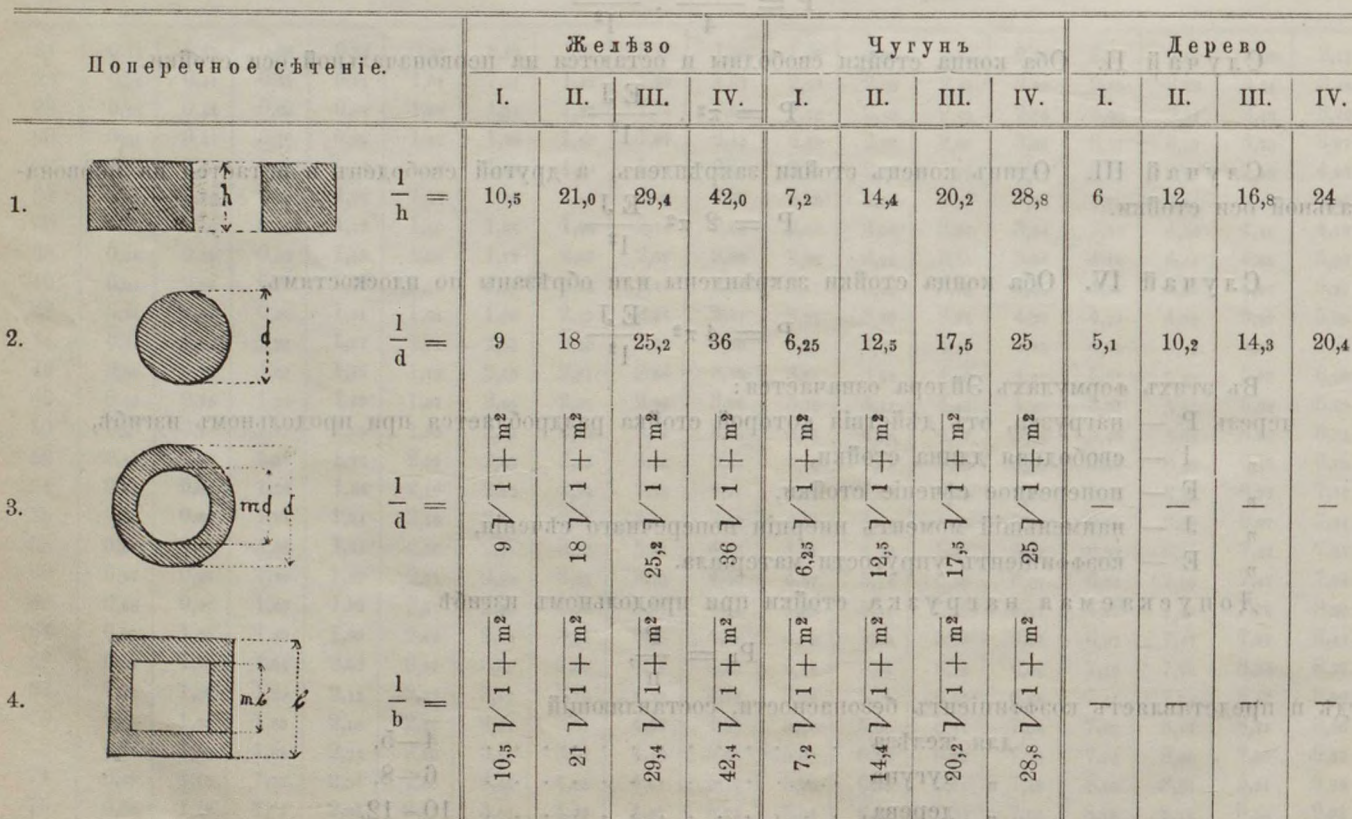 Поперечное сѣченіе. Желѣзо Чугунъ Дерево
I. II. III. IV. I. II. III. IV. I. II. III. IV.
1. h l/h = 10,5 21,0 29,4 42,0 7,2 14,4 20,2 28,8 6 12 16,8 24
2. d l/d = 9 18 25,2 36 6,25 12,5 17,5 25 5,1 10,2 14,3 20,4
3. md d l/d = 9 √1 + m² 18 √1 + m² 25,2 √1 + m² 36 √1 + m² 6,25 √1 + m² 12,5 √1 + m² 17,5 √1 + m² 25 √1 + m² — — — —
4. mb b l/b = 10,5 √1 + m² 21 √1 + m² 29,4 √1 + m² 42,4 √1 + m² 7,2 √1 + m² 14,4 √1 + m² 20,2 √1 + m² 28,8 √1 + m² — — — —